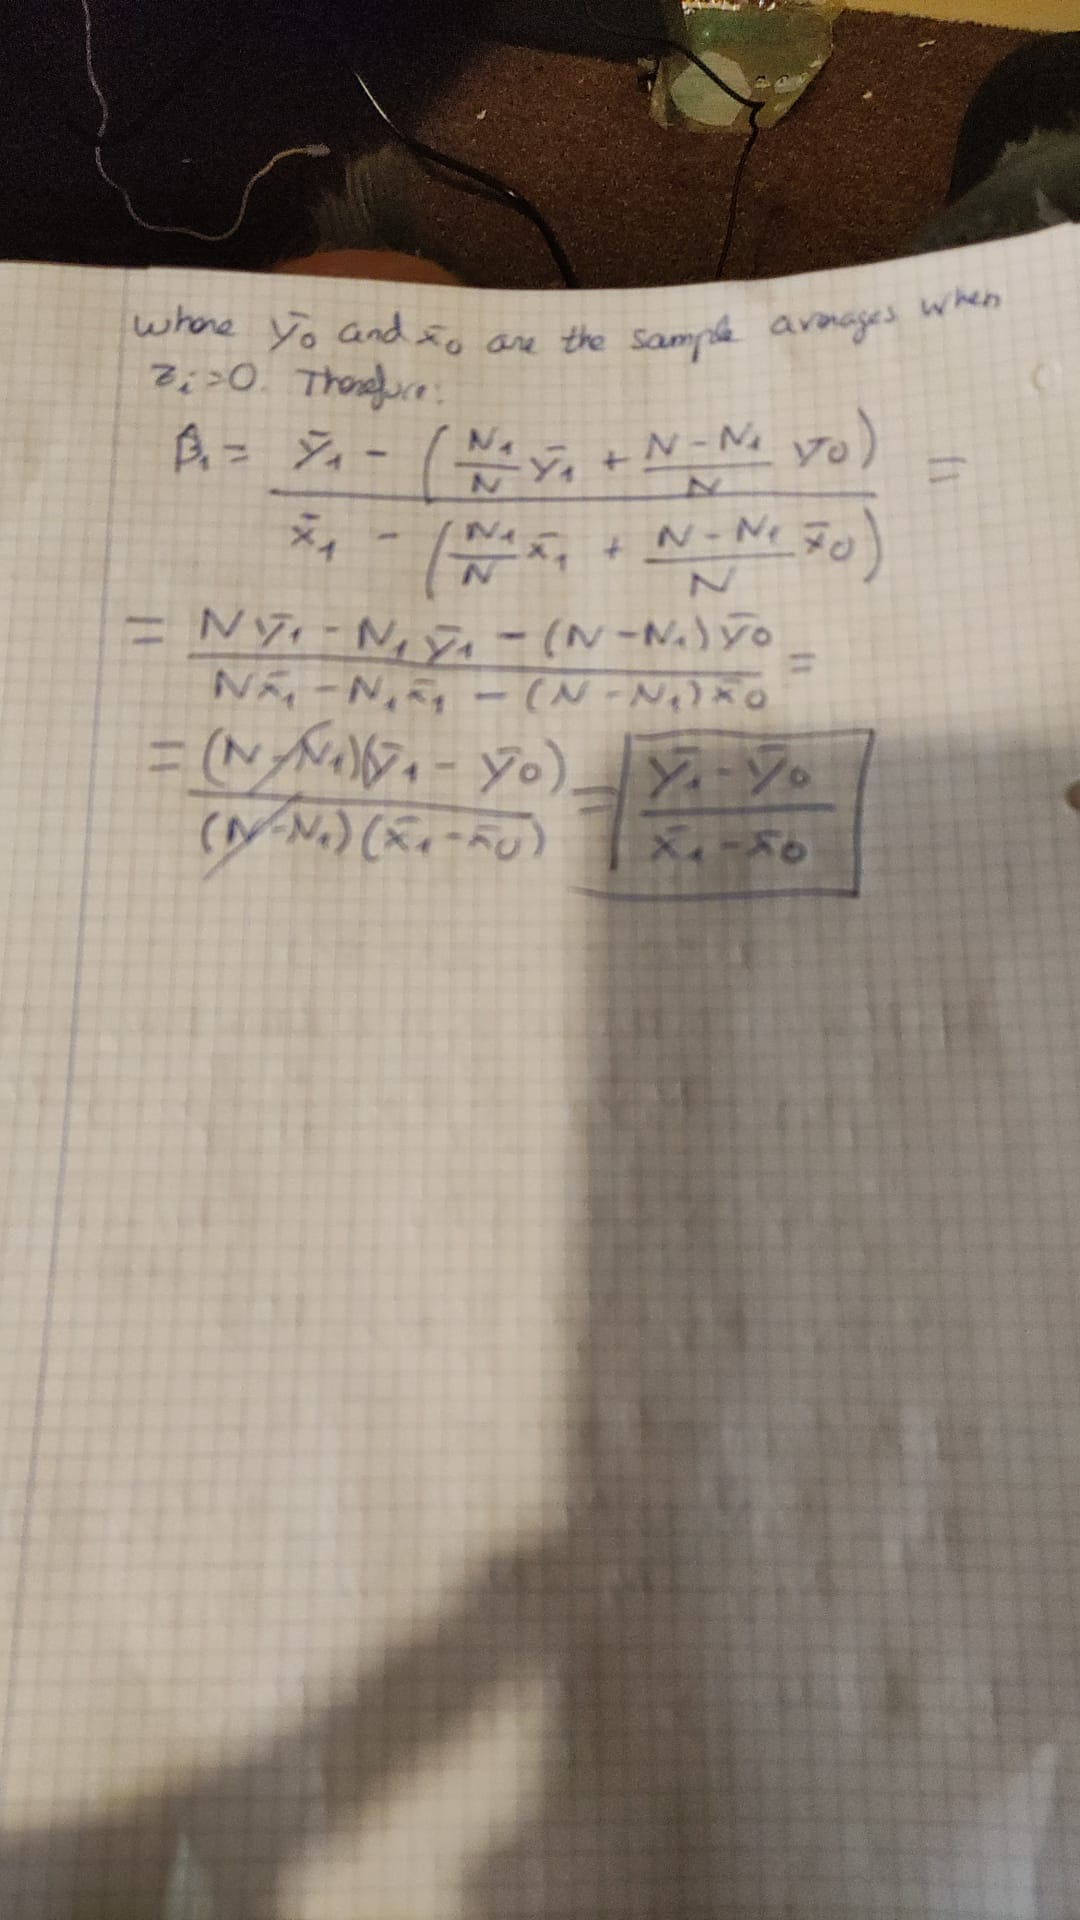 where ȳ₀ and x̄₀ are the sample averages when
zᵢ=0. Therefore:
β̂₁ = (ȳ₁ - (N₁/N ȳ₁ + (N-N₁)/N ȳ0)) / (x̄₁ - (N₁/N x̄₁ + (N-N₁)/N x̄0)) =
= (Nȳ₁ - N₁ȳ₁ - (N-N₁)ȳ0) / (Nx̄₁ - N₁x̄₁ - (N-N₁)x̄0) =
= ((N-N₁)(ȳ₁ - ȳ0)) / ((N-N₁)(x̄₁ - x̄0)) = (ȳ₁ - ȳ0) / (x̄₁ - x̄0)